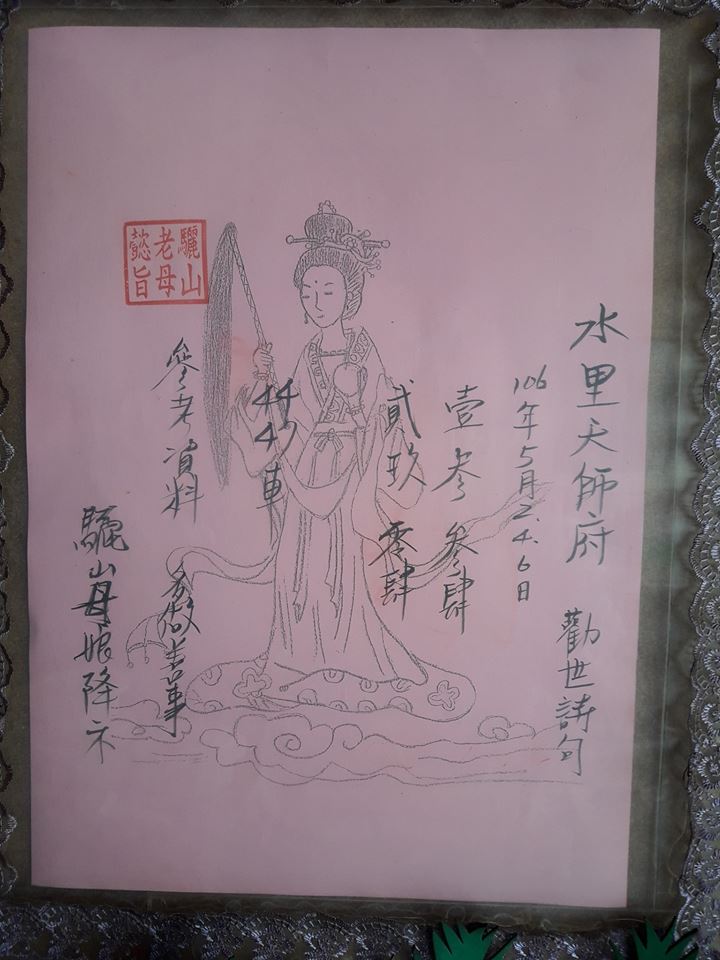 水里天師府 勸世詩句
106年5月2.4.6日
壹叁 叁肆
貳玖 零肆
44 47車
參考資料 多做善事
驪山母娘降示
驪山
老母
懿旨